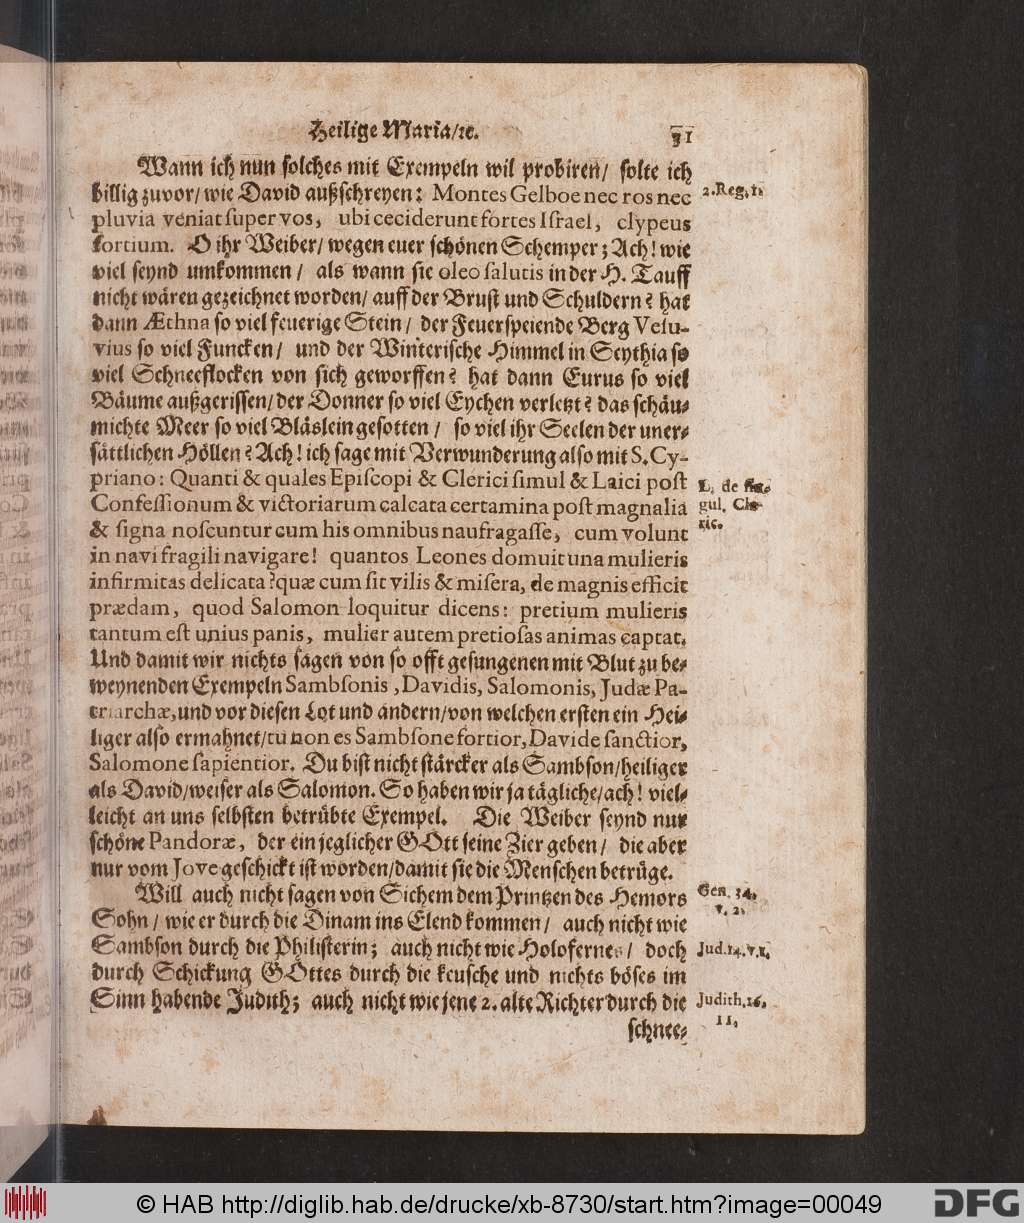 Heilige Maria/ꝛc. 31
Wann ich nun ſolches mit Exempeln wil probiren/ ſolte ich
billig zuvor/ wie David außſchreyen: Montes Gelboe nec ros nec
2. Reg. 1.
pluvia veniat ſuper vos, ubi ceciderunt fortes Iſrael, clypeus
fortium. O ihr Weiber/ wegen euer ſchönen Schemper; Ach! wie
viel ſeynd umkommen/ als wann ſie oleo ſalutis in der H. Tauff
nicht wären gezeichnet worden/ auff der Bruſt und Schuldern? hat
dann Æthna ſo viel feuerige Stein/ der Feuerſpeiende Berg Veſu-
vius ſo viel Funcken/ und der Winteriſche Himmel in Scythia ſo
viel Schneeflocken von ſich geworffen? hat dann Eurus ſo viel
Bäume außgeriſſen/ der Donner ſo viel Eychen verletzt? das ſchäu-
michte Meer ſo viel Bläslein geſotten/ ſo viel ihr Seelen der uner-
ſättlichen Höllen? Ach! ich ſage mit Verwunderung alſo mit S. Cy-
priano: Quanti & quales Epiſcopi & Clerici ſimul & Laici poſt
L. de
Confeſſionum & victoriarum calcata certamina poſt magnalia
gul. Cle-
& ſigna noſcuntur cum his omnibus naufragaſſe, cum volunt
ric.
in navi fragili navigare! quantos Leones domuit una mulieris
infirmitas delicata? quæ cum ſit vilis & miſera, de magnis efficit
prædam, quod Salomon loquitur dicens: pretium mulieris
tantum eſt unius panis, mulier autem pretioſas animas captat.
Und damit wir nichts ſagen von ſo offt geſungenen mit Blut zu be-
weynenden Exempeln Sambſonis, Davidis, Salomonis, Judæ Pa-
triarchæ, und vor dieſen Lot und andern/ von welchen erſten ein Hei-
liger alſo ermahnet/ tu non es Sambſone fortior, Davide ſanctior,
Salomone ſapientior. Du biſt nicht ſtärcker als Sambſon/ heiliger
als David/ weiſer als Salomon. So haben wir ja tägliche/ ach! viel-
leicht an uns ſelbſten betrübte Exempel. Die Weiber ſeynd nur
ſchöne Pandoræ, der ein jeglicher GOtt ſeine Zier geben/ die aber
nur vom Jove geſchickt iſt worden/ damit ſie die Menſchen betrüge.
Will auch nicht ſagen von Sichem dem Printzen des Hemors
Gen. 34.
Sohn/ wie er durch die Dinam ins Elend kommen/ auch nicht wie
v. 2.
Sambſon durch die Philiſterin; auch nicht wie Holofernes/ doch
Jud. 14. v. 1.
durch Schickung GOttes durch die keuſche und nichts böſes im
Sinn habende Judith; auch nicht wie jene 2. alte Richter durch die
Judith. 16.
11.
ſchnee-
© HAB http://diglib.hab.de/drucke/xb-8730/start.htm?image=00049
DFG